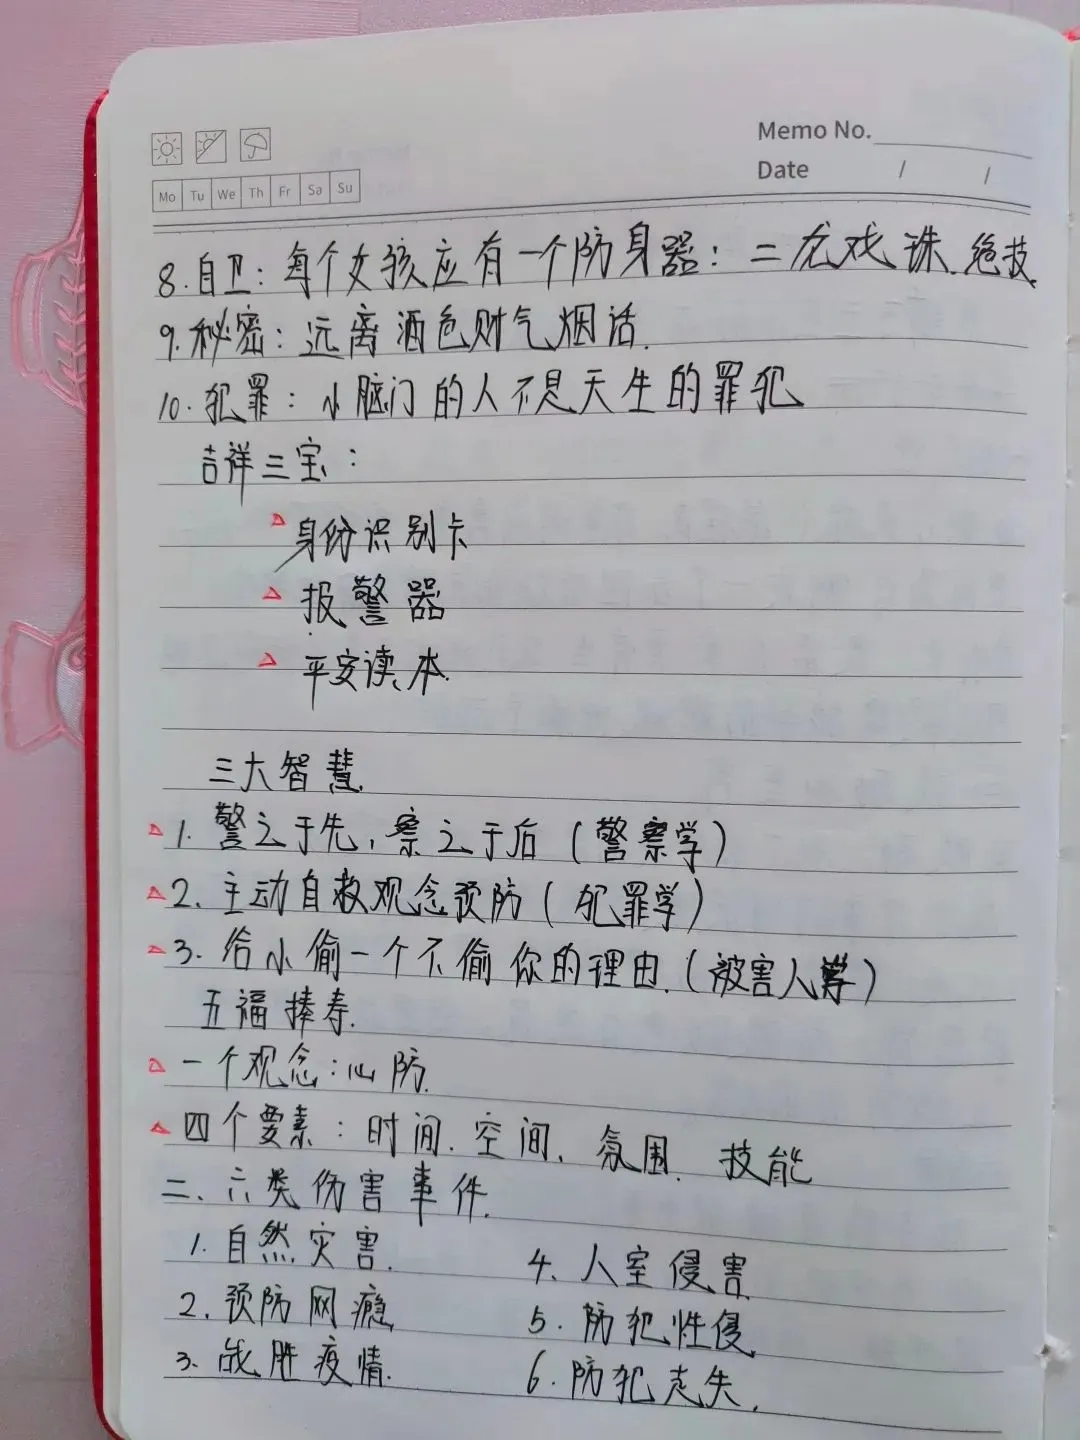 Memo No.
Date / /
Mo Tu We Th Fr Sa Su
8.自卫:每个女孩应有一个防身器:二龙戏珠.绝技
9.秘密:远离酒色财气烟话.
10.犯罪:小脑门的人不是天生的罪犯
吉祥三宝:
身份识别卡
报警器
平安读本.
三大智慧.
1.警之于先,察之于后(警察学)
2.主动自救观念预防(犯罪学)
3.给小偷一个不偷你的理由.(被害人学)
五福捧寿.
一个观念:心防.
四个要素:时间.空间、氛围.技能
二、六类伤害事件.
1.自然灾害.
2.预防网瘾
3.战胜疫情.
4、人室侵害
5.防犯性侵
6.防犯走失.